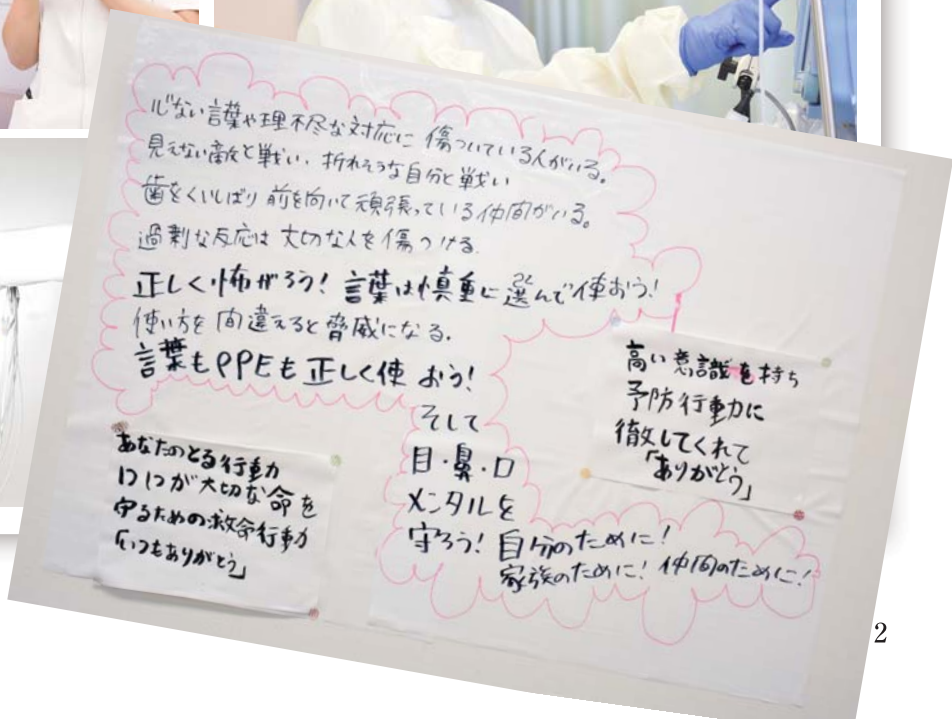 心ない言葉や理不尽な対応に傷ついている人がいる。
見えない敵と戦い、折れそうな自分と戦い
歯をくいしばり前を向いて頑張っている仲間がいる。
過剰な反応は大切な人を傷つける。
正しく怖がろう！言葉は慎重に選んで使おう！
使い方を間違えると脅威になる。
言葉もPPEも正しく使おう！
そして
目・鼻・口
メンタルを
守ろう！自分のために！
家族のために！仲間のために！
高い意識を持ち
予防行動に
徹してくれて
「ありがとう」
あなたのとる行動
1つ1つが大切な命を
守るための救命行動
「いつもありがとう」
2